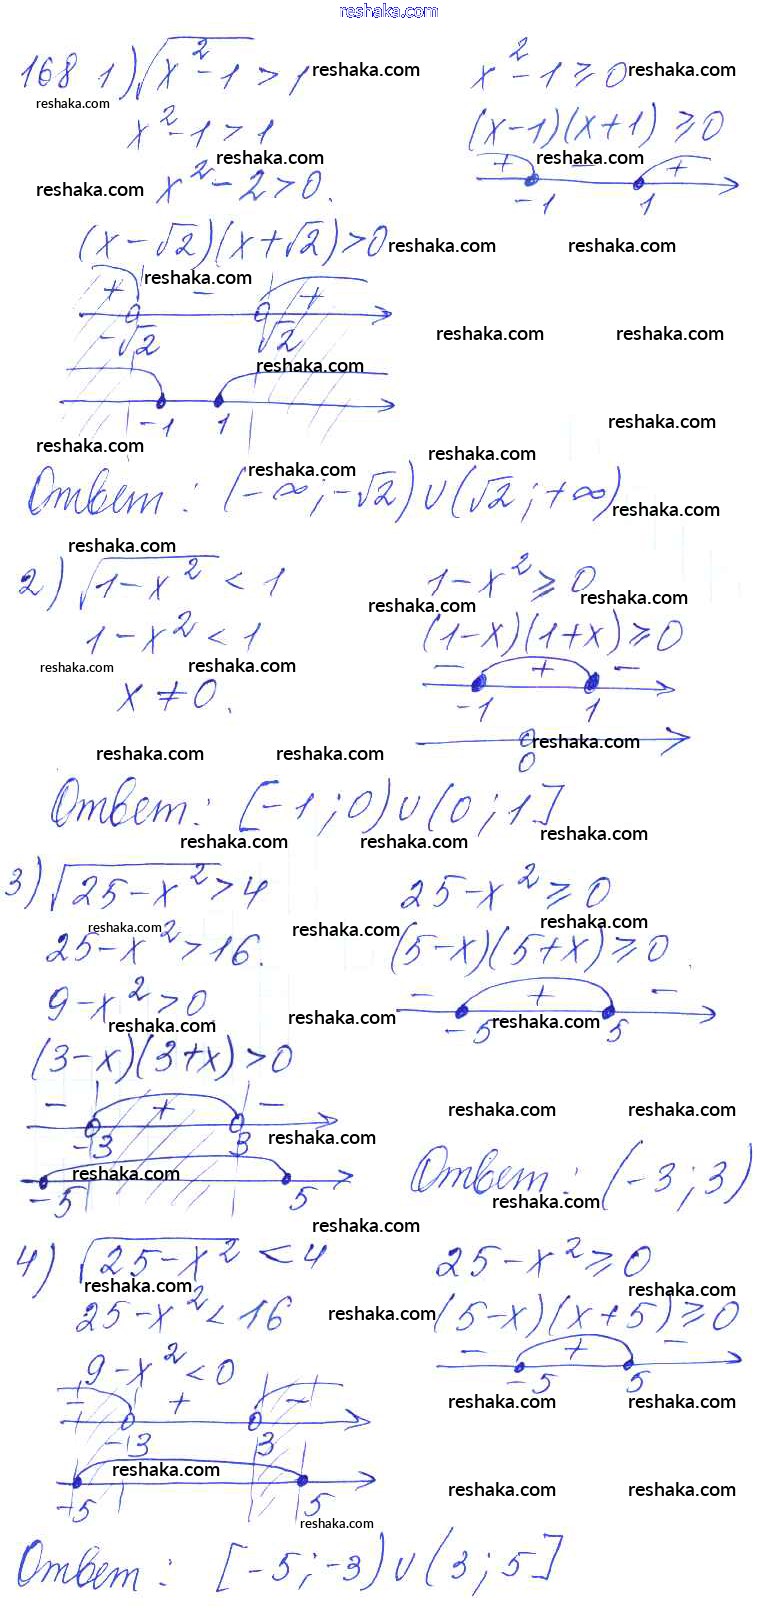 reshaka.com
168 1) √(x² - 1) > 1 reshaka.com x² - 1 ≥ 0 reshaka.com
reshaka.com
x² - 1 > 1 (x - 1)(x + 1) ≥ 0
reshaka.com reshaka.com
+ - +
reshaka.com x² - 2 > 0. -1 1
(x - √2)(x + √2) > 0 reshaka.com reshaka.com
reshaka.com
+ - +
-√2 √2 reshaka.com reshaka.com
reshaka.com
-1 1 reshaka.com
reshaka.com reshaka.com
reshaka.com
Ответ: (-∞; -√2) ∪ (√2; +∞) reshaka.com
reshaka.com
2) √(1 - x²) < 1 1 - x² ≥ 0 reshaka.com
reshaka.com
1 - x² < 1 (1 - x)(1 + x) ≥ 0
reshaka.com reshaka.com - + -
x ≠ 0. -1 1
reshaka.com reshaka.com reshaka.com
0
Ответ: [-1; 0) ∪ (0; 1]
reshaka.com reshaka.com reshaka.com
3) √(25 - x²) > 4 25 - x² ≥ 0
reshaka.com reshaka.com reshaka.com
25 - x² > 16. (5 - x)(5 + x) ≥ 0.
9 - x² > 0 - + -
reshaka.com reshaka.com -5 reshaka.com 5
(3 - x)(3 + x) > 0
- + - reshaka.com reshaka.com
-3 3 reshaka.com
reshaka.com Ответ: (-3; 3)
-5 5 reshaka.com
reshaka.com
4) √(25 - x²) < 4 25 - x² ≥ 0
reshaka.com reshaka.com
25 - x² < 16 reshaka.com (5 - x)(x + 5) ≥ 0
9 - x² < 0 - + -
-5 5
- + - reshaka.com reshaka.com
-3 3
reshaka.com
-5 5 reshaka.com reshaka.com
reshaka.com
Ответ: [-5; -3) ∪ (3; 5]